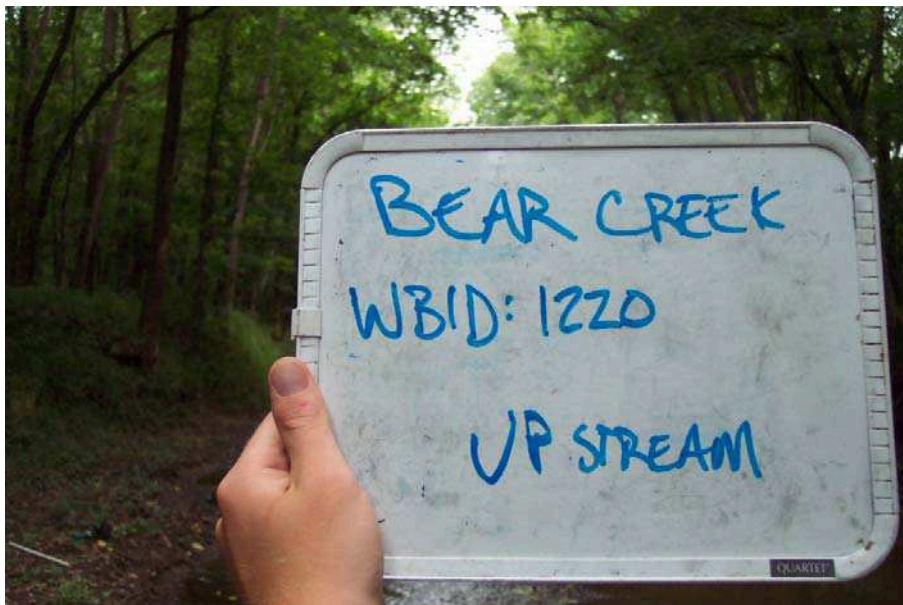 BEAR CREEK
WBID: 1220
UP STREAM
QUARTET